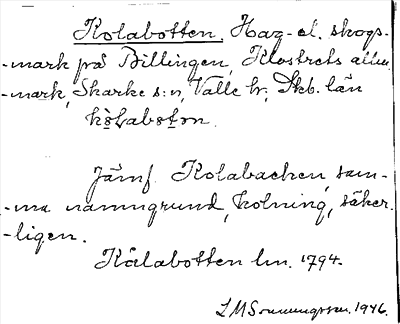 Kolabotten. Hag- el. skogs-
-mark på Billingen, Klostrets allm.
-mark, Skarke s:n, Valle hr, Skb. län
Jämf. Kolabacken, sam-
-ma namngrund, kolning, säker-
-ligen.
Kålabotten lm. 1794.
1946.